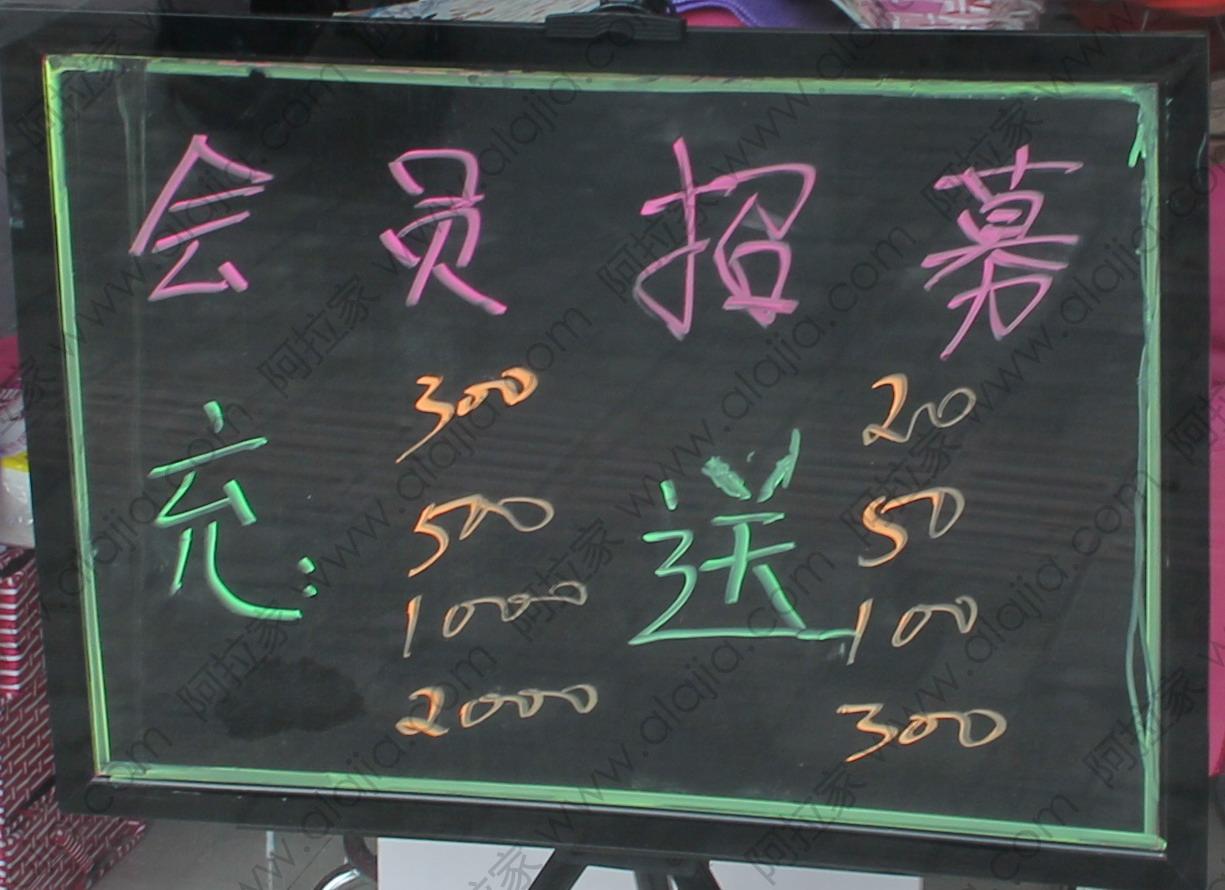 会员招募
充: 300 送 20
500 50
1000 100
2000 300
阿拉家 www.alajia.com